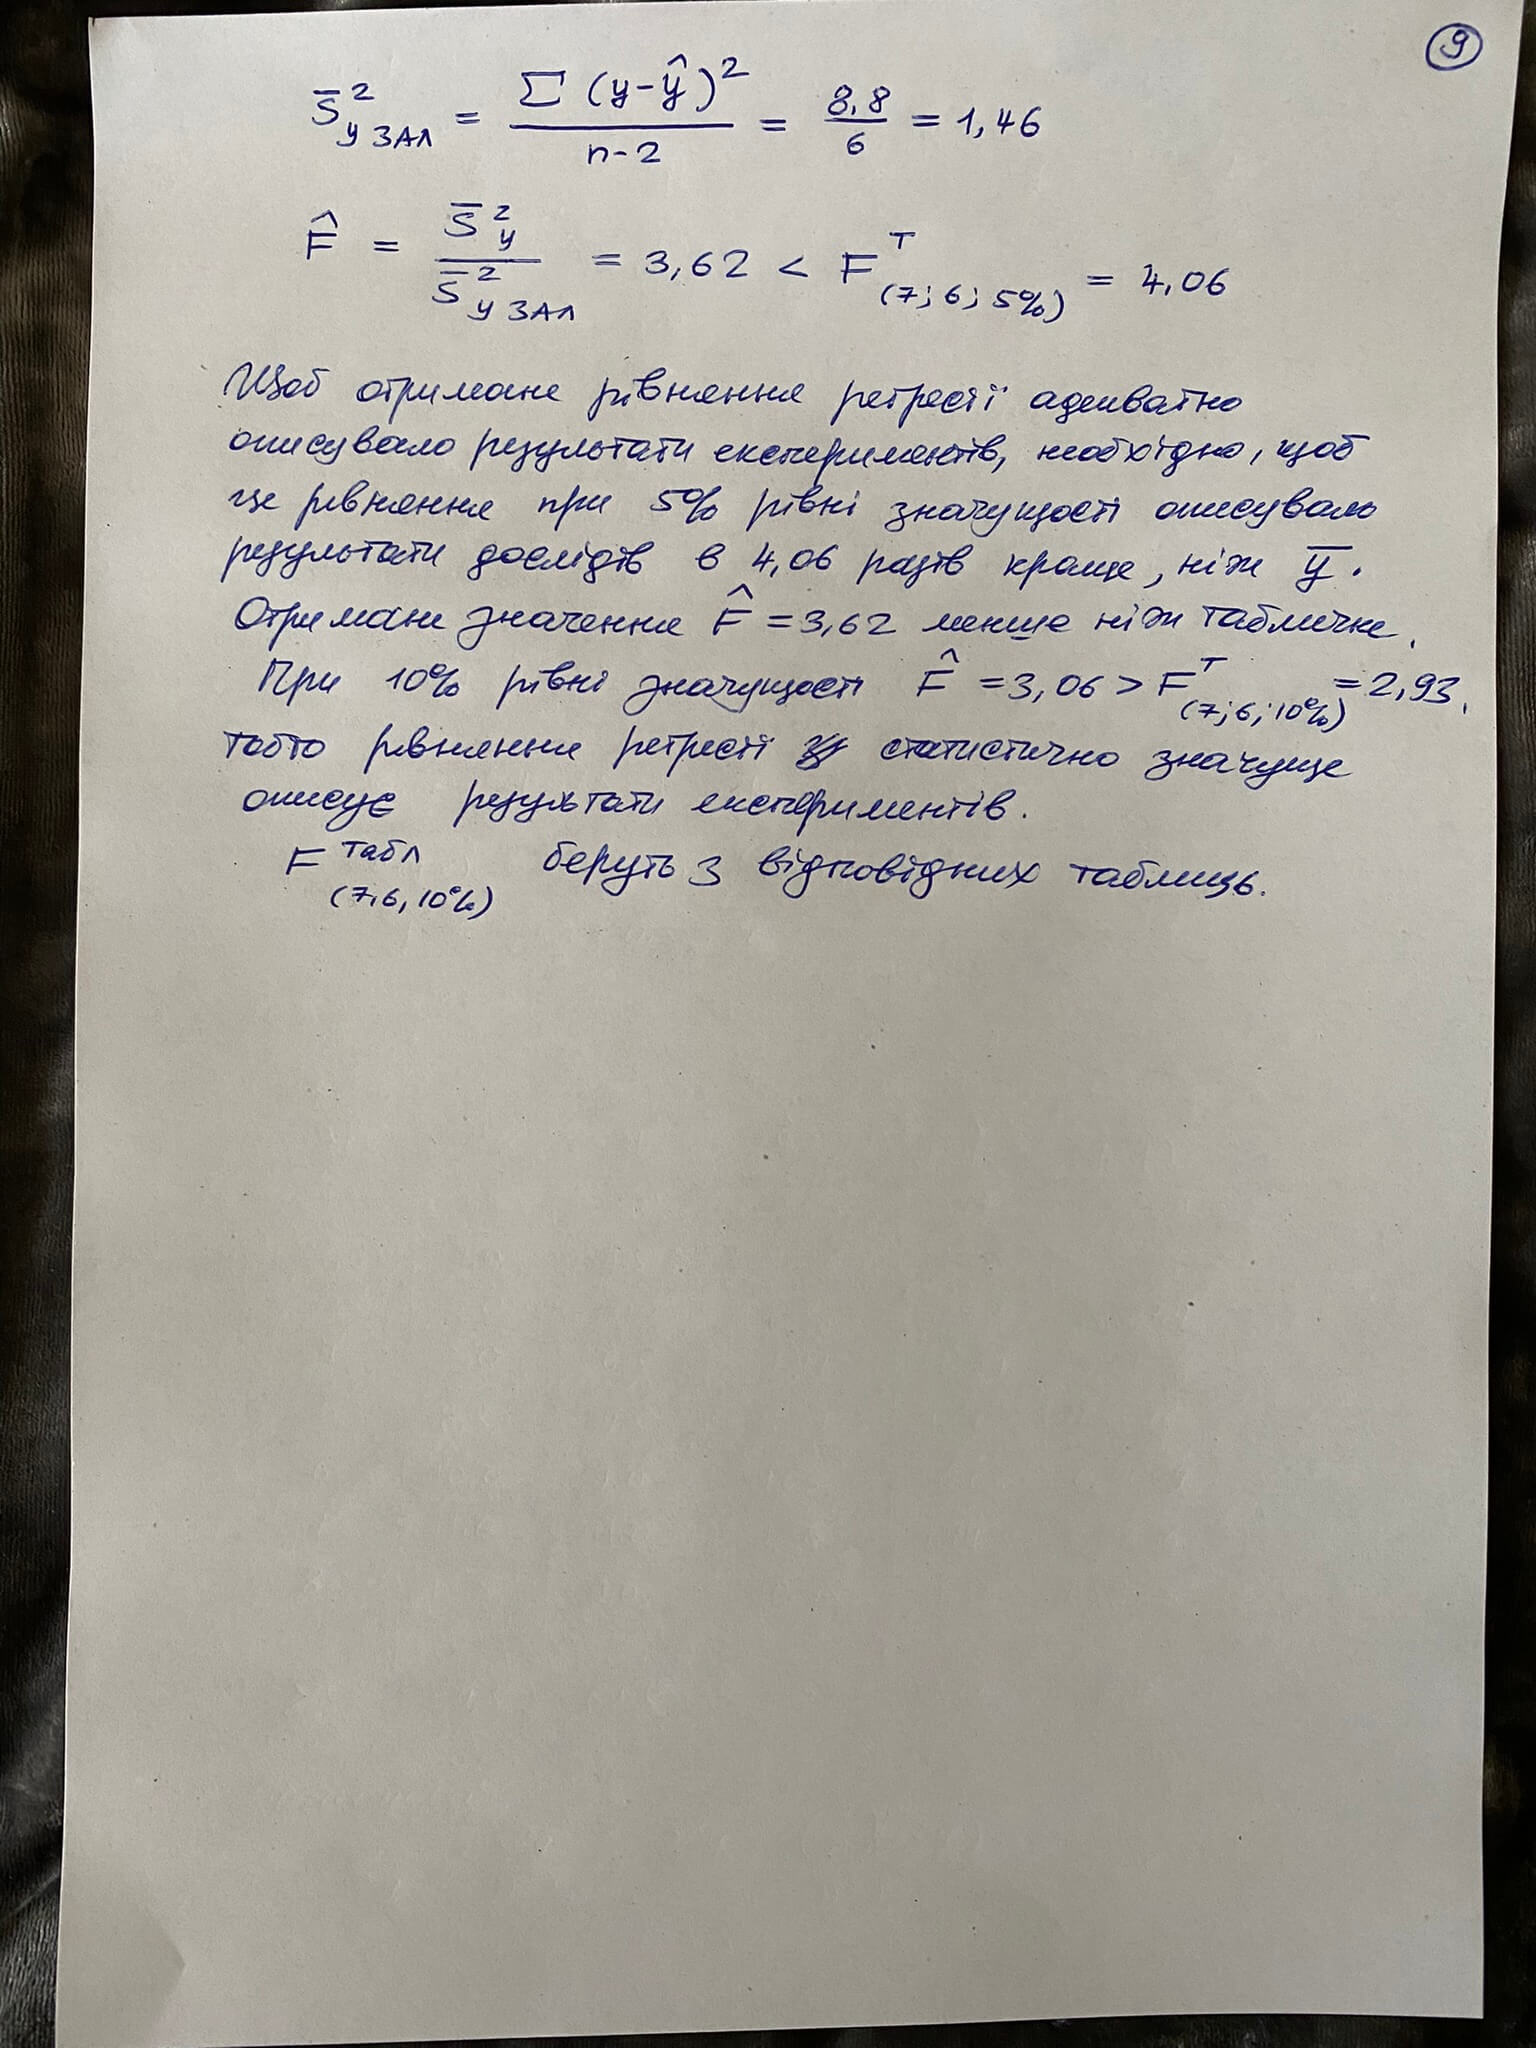 9
S̄² y ЗАЛ = Σ (y-ŷ)² / n-2 = 8,8 / 6 = 1,46
F̂ = S̄² y / S̄² y ЗАЛ = 3,62 < F T (7; 6; 5%) = 4,06
Щоб отримане рівняння регресії адекватно
описувало результати експериментів, необхідно, щоб
це рівняння при 5% рівні значущості описувало
результати дослідів в 4,06 разів краще, ніж ȳ.
Отримане значення F̂ = 3,62 менше ніж табличне.
При 10% рівні значущості F̂ = 3,06 > F T (7; 6; 10%) = 2,93,
тобто рівняння регресії статистично значуще
описує результати експериментів.
F табл (7,6,10%) беруть з відповідних таблиць.